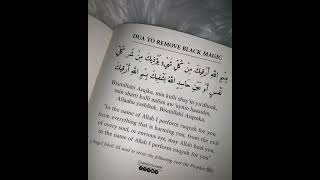 DUA TO REMOVE BLACK MAGIC
بِسْمِ اللَّهِ أَرْقِيكَ مِنْ كُلِّ شَيْءٍ يُؤْذِيكَ مِنْ شَرِّ كُلِّ
نَفْسٍ أَوْ عَيْنِ حَاسِدٍ اللَّهُ يَشْفِيكَ بِسْمِ اللَّهِ أَرْقِيكَ
Bismillahi Arqika, min kulli shay'in yu'dheeka,
min sharri kulli nafsin aw 'aynin haasidin,
Allaahu yashfeek, Bismillahi Arqeeka.
"In the name of Allah I perform ruqyah for you,
from everything that is harming you, from the evil
of every soul, or envious eye, may Allah heal you,
in the name of Allah I perform ruqyah for you"